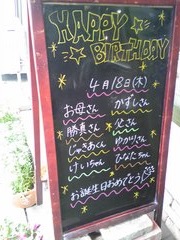 HAPPY
BIRTHDAY
4月18日(木)
お母さん かずしさん
勝真さん 父さん
じゅきあくん ゆかりさん
けいちゃん ひなたちゃん
お誕生日おめでとう